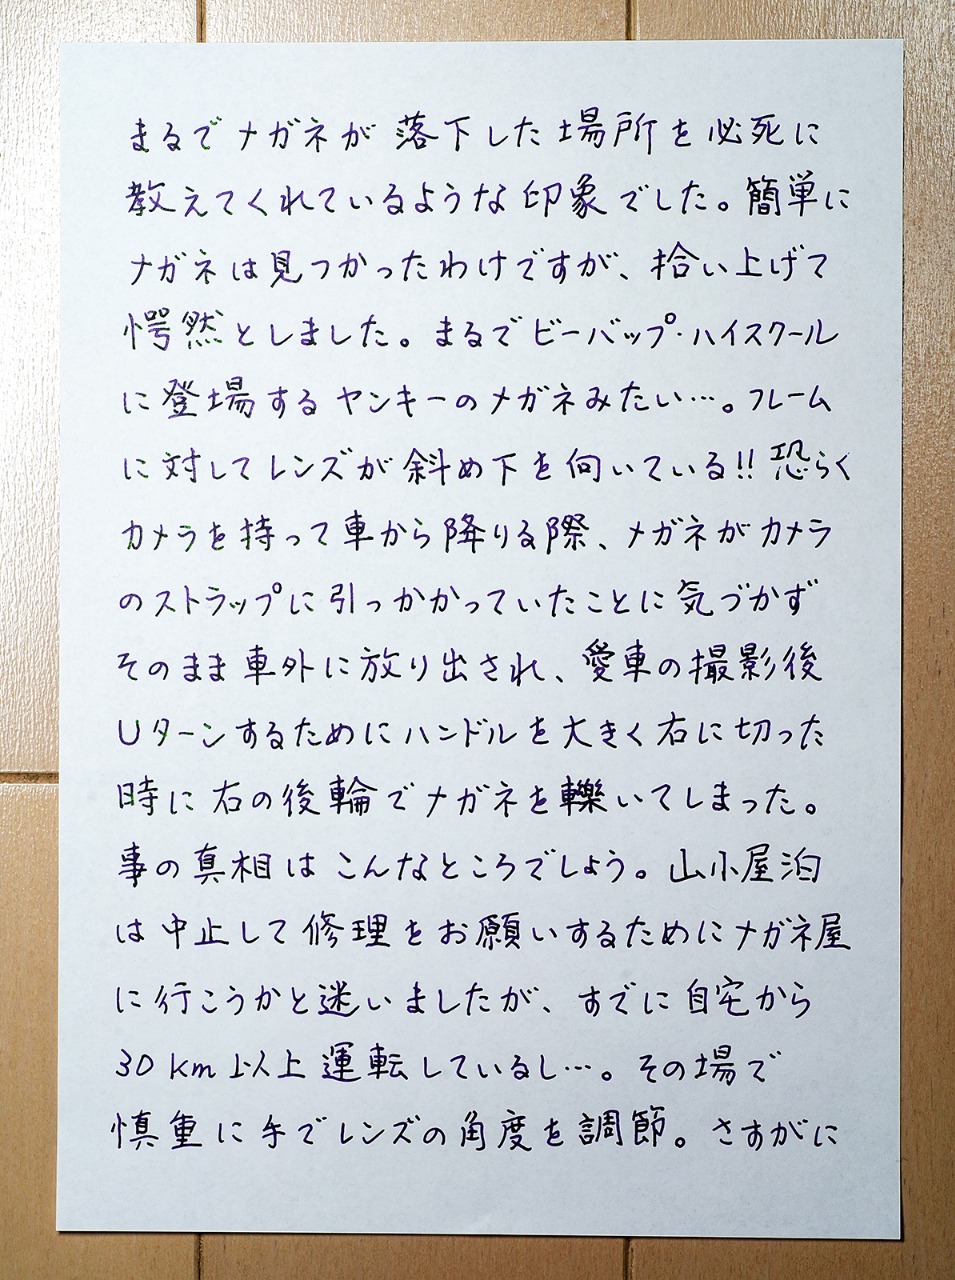 まるでメガネが落下した場所を必死に
教えてくれているような印象でした。簡単に
メガネは見つかったわけですが、拾い上げて
愕然としました。まるでビーバップ・ハイスクール
に登場するヤンキーのメガネみたい…。フレーム
に対してレンズが斜め下を向いている!! 恐らく
カメラを持って車から降りる際、メガネがカメラ
のストラップに引っかかっていたことに気づかず
そのまま車外に放り出され、愛車の撮影後
Uターンするためにハンドルを大きく右に切った
時に右の後輪でメガネを轢いてしまった。
事の真相はこんなところでしょう。山小屋泊
は中止して修理をお願いするためにメガネ屋
に行こうかと迷いましたが、すでに自宅から
30km以上運転しているし…。その場で
慎重に手でレンズの角度を調節。さすがに